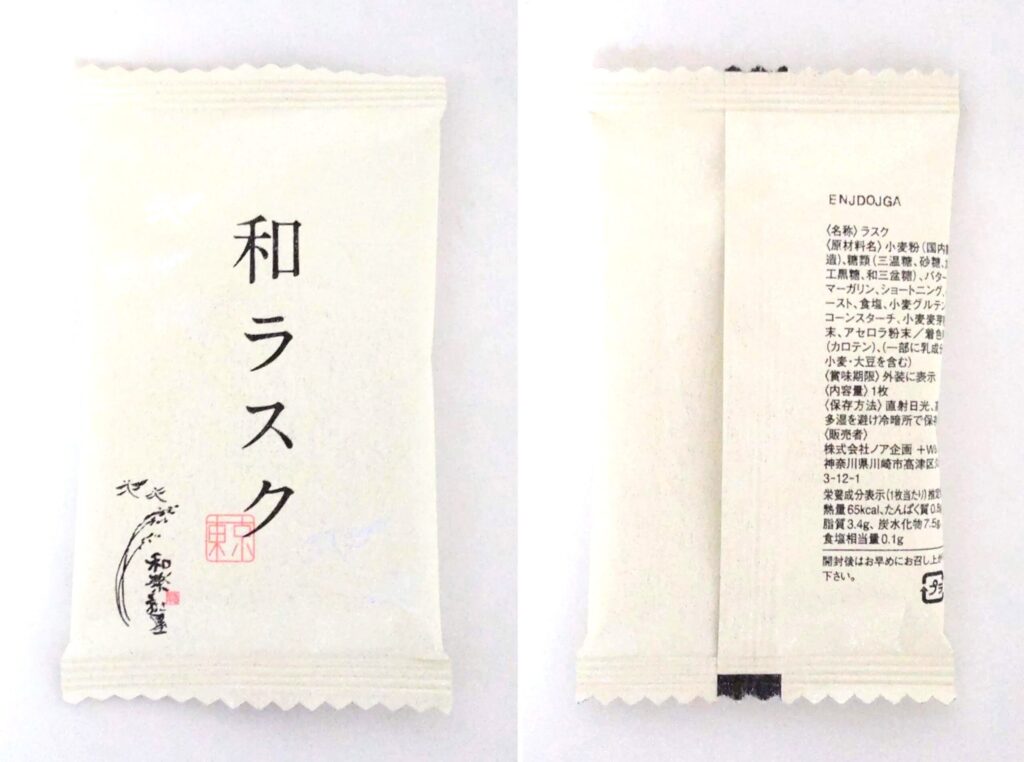 和ラスク
東京
和楽
ENJDOJGA
〈名称〉ラスク
〈原材料名〉小麦粉(国内
造)、糖類(三温糖、砂糖、
工黒糖、和三盆糖)、バター
マーガリン、ショートニング、
ースト、食塩、小麦グルテン
コーンスターチ、小麦麦芽
末、アセロラ粉末/着色
(カロテン)、(一部に乳成分
小麦・大豆を含む)
〈賞味期限〉外装に表示
〈内容量〉1枚
〈保存方法〉直射日光、
多湿を避け冷暗所で保存
〈販売者〉
株式会社ノア企画 +W
神奈川県川崎市高津区
3-12-1
栄養成分表示(1枚当たり)推定
熱量65kcal、たんぱく質0.
脂質3.4g、炭水化物7.5g
食塩相当量0.1g
開封後はお早めにお召し上が
下さい。
プラ